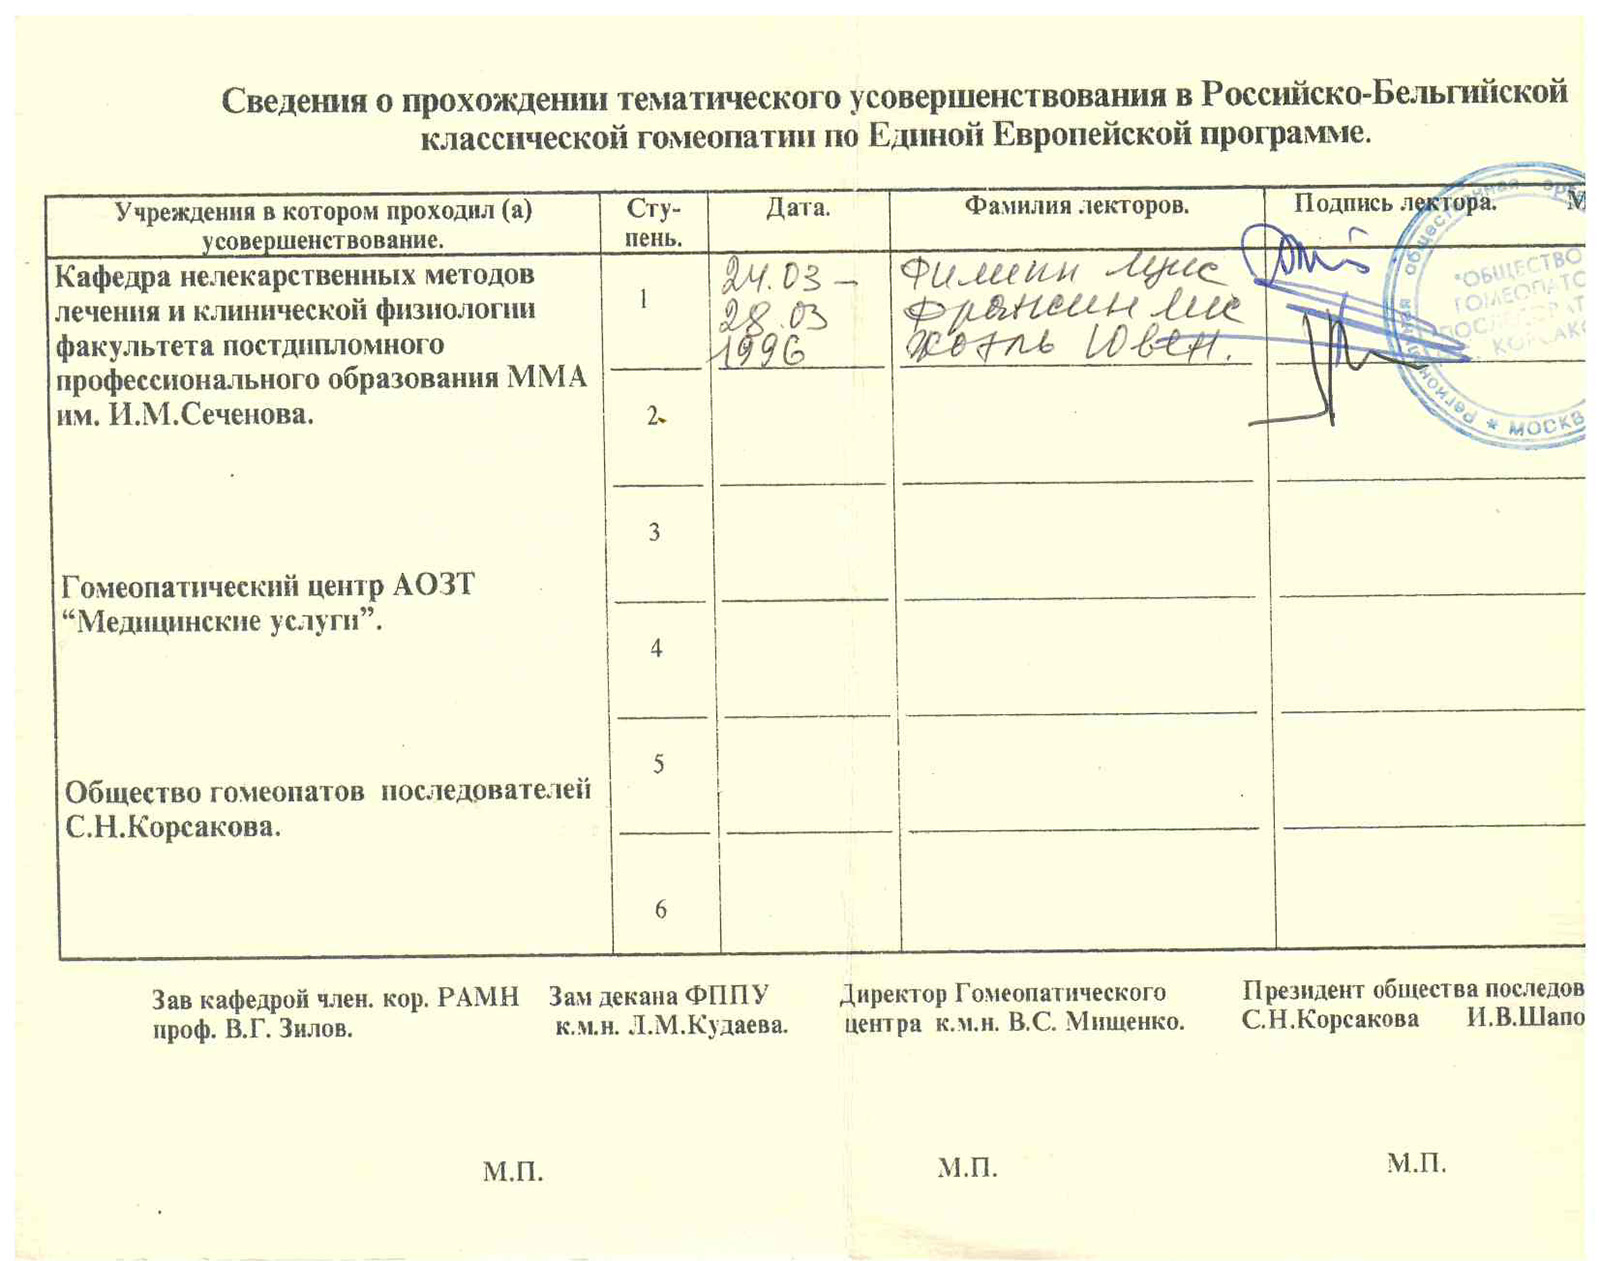 Сведения о прохождении тематического усовершенствования в Российско-Бельгийской
классической гомеопатии по Единой Европейской программе.
Учреждения в котором проходил (а)
усовершенствование.
Сту-
пень.
Дата.
Фамилия лекторов.
Подпись лектора.
М
Кафедра нелекарственных методов
лечения и клинической физиологии
факультета постдипломного
профессионального образования ММА
им. И.М.Сеченова.
Гомеопатический центр АОЗТ
“Медицинские услуги”.
Общество гомеопатов последователей
С.Н.Корсакова.
1
24.03 –
28.03
1996
Филипп
Франсин
Жоэль Ювен.
2
3
4
5
6
общественная
"ОБЩЕСТВО
ГОМЕОПАТО
КОРСАКО
Региональная
* МОСКВ
Зав кафедрой член. кор. РАМН
проф. В.Г. Зилов.
Зам декана ФППУ
к.м.н. Л.М.Кудаева.
Директор Гомеопатического
центра к.м.н. В.С. Мищенко.
Президент общества последов
С.Н.Корсакова И.В.Шапо
М.П.
М.П.
М.П.